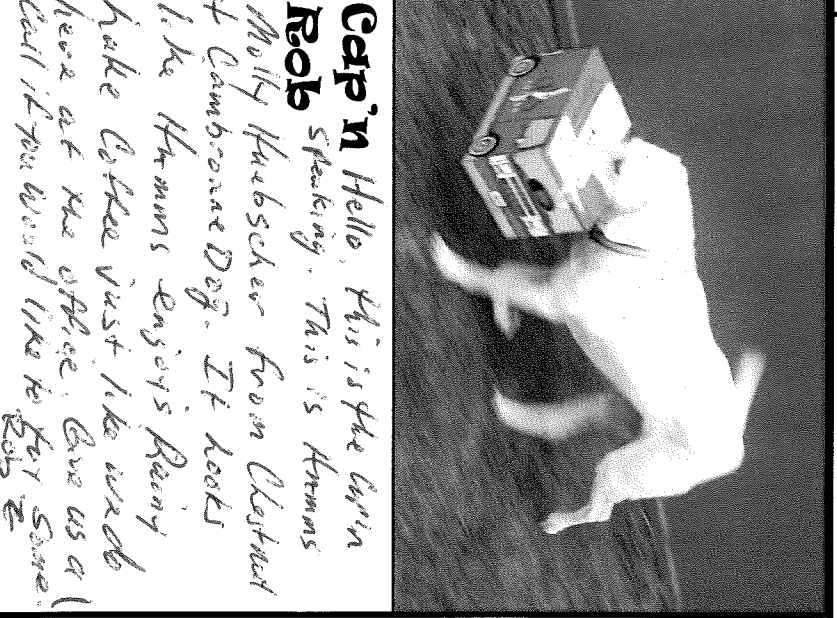 Cap'n Hello, this is the Cap'n
Rob speaking. This is Hamms
Molly Huebscher from Chestnut
+ Cambronne Dog. It looks
like Hamms enjoys Rainy
Lake Coffee just like we do
here at the office. Give us a
call if you would like to try some.
Rob